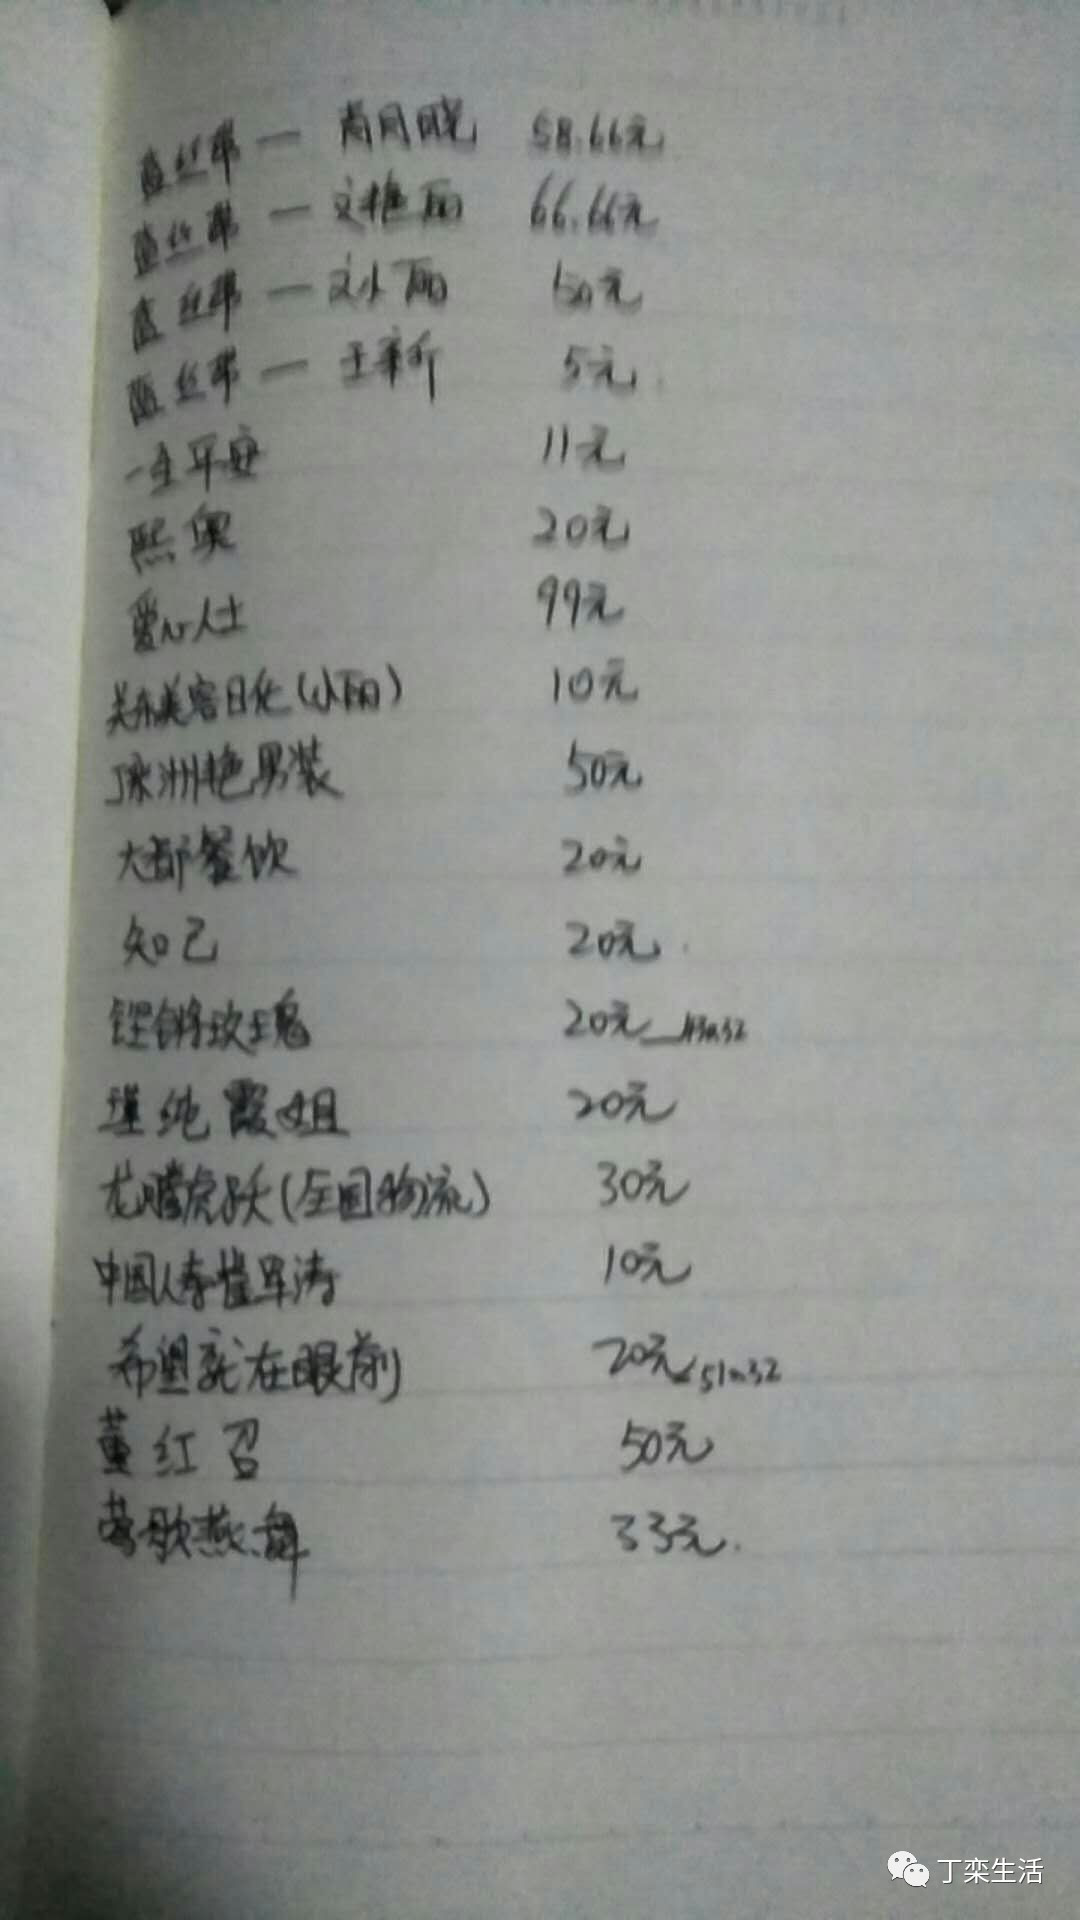 蓝丝带一尚风晓 58.66元
蓝丝带一文艳丽 66.66元
蓝丝带一文小丽 50元
蓝丝带一王新 5元
一生平安 11元
熙奥 20元
爱心人士 99元
美容日化(小丽) 10元
洲艳男装 50元
大都餐饮 20元
知己 20元
铿锵玫瑰 20元 430.32
纯霞姐 20元
龙腾虎跃(全国物流) 30元
中国人寿崔军涛 10元
希望就在眼前 20元 510.32
董红召 50元
莺歌燕舞 33元.
丁栾生活